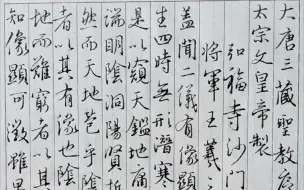 大唐三藏聖教序
太宗文皇帝製
弘福寺沙門
將軍王羲之
蓋聞二儀有像顯
生四時無形潛寒
是以窺天鑑地庸
端明陰洞陽賢哲
然而天地苞乎陰
者以其有像也陰
地而難窮者以其
知像顯可徵雖愚